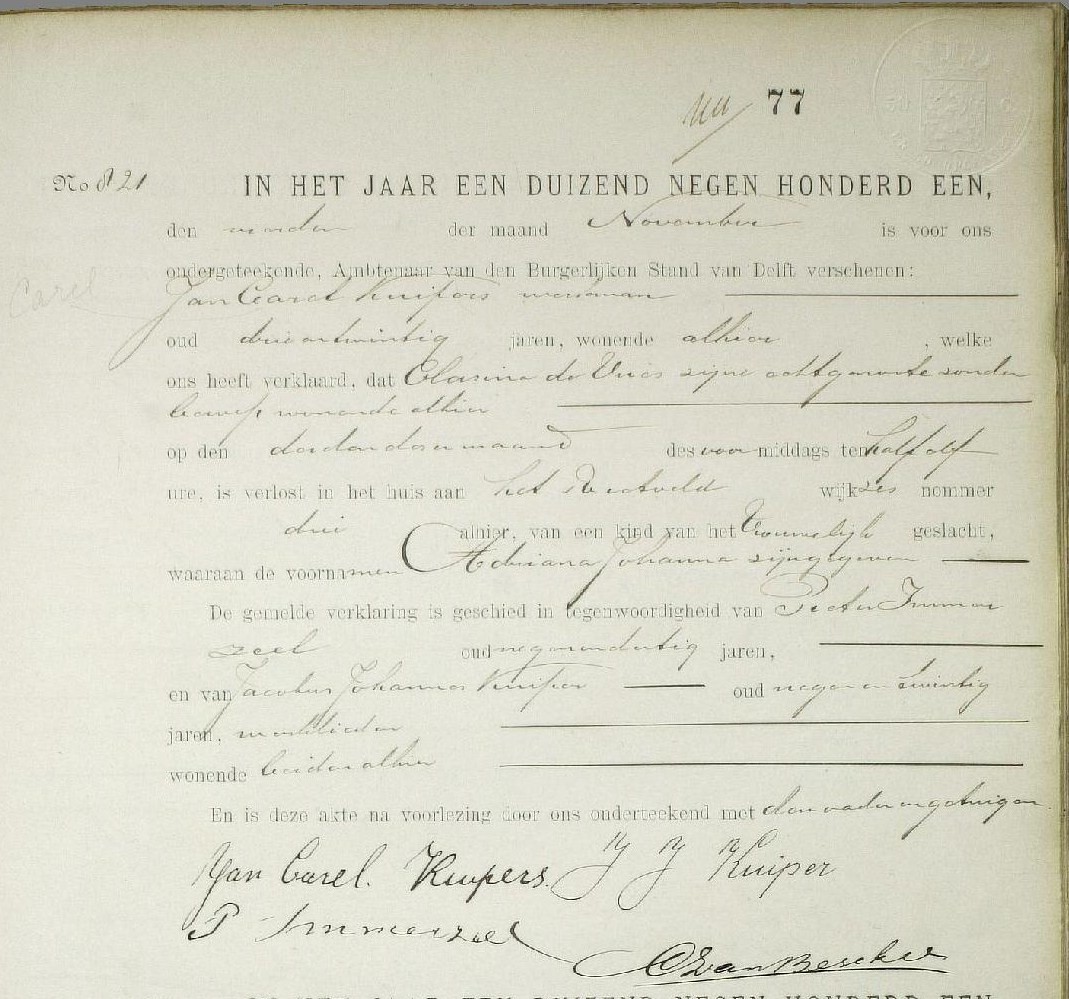 77
No 821 IN HET JAAR EEN DUIZEND NEGEN HONDERD EEN,
den vierden der maand November is voor ons
Carel
ondergeteekende, Ambtenaar van den Burgerlijken Stand van Delft verschenen:
Jan Carel Kuipers werkman
oud drie en twintig jaren, wonende alhier , welke
ons heeft verklaard, dat Clasina de Vries zijne echtgenoote zonder
beroep wonende alhier
op den derden dezer maand des voor middags ten half elf
ure, is verlost in het huis aan het wijk zes nommer
drie alhier, van een kind van het Vrouwelijk geslacht,
waaraan de voornamen Adriana Johanna zijn gegeven
De gemelde verklaring is geschied in tegenwoordigheid van Pieter Immer
zeel oud negenendertig jaren,
en van Jacobus Johannes Kuiper oud negen en twintig
jaren, werklieden
wonende beiden alhier
En is deze akte na voorlezing door ons onderteekend met den vader en getuigen.
Jan Carel. Kuipers. J J Kuiper
P Immerzeel